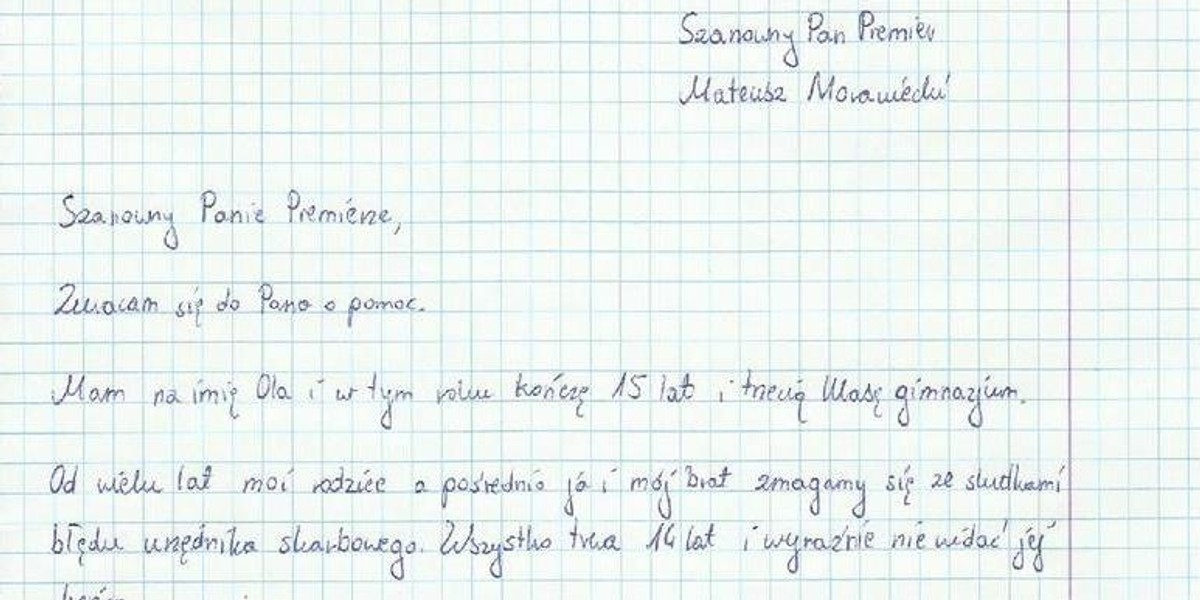 Szanowny Pan Premier
Mateusz Morawiecki
Szanowny Panie Premierze,
Zwracam się do Pana o pomoc.
Mam na imię Ola i w tym roku kończę 15 lat i trzecią klasę gimnazjum.
Od wielu lat moi rodzice a pośrednio ja i mój brat zmagamy się ze skutkami
błędu urzędnika skarbowego. Wszystko trwa 14 lat i wyraźnie nie widać jej